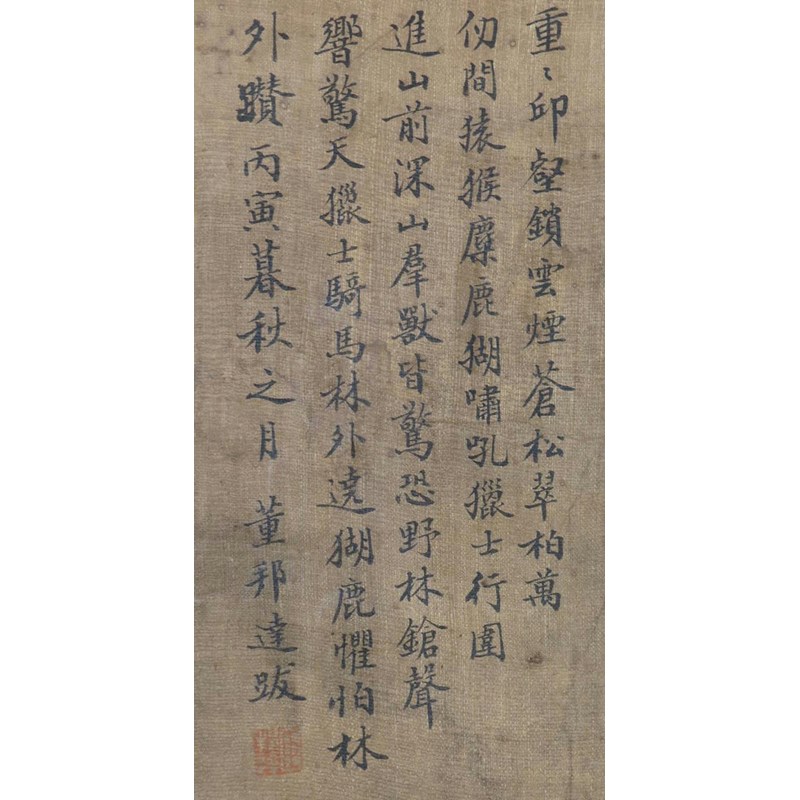 重〻邱壑鎖雲煙蒼松翠柏萬
仞間猿猴麋鹿猢嘯吼獵士行圍
進山前深山羣獸皆驚恐野林鎗聲
響驚天獵士騎馬林外遶猢鹿懼怕林
外躦丙寅暮秋之月 董邦達跋